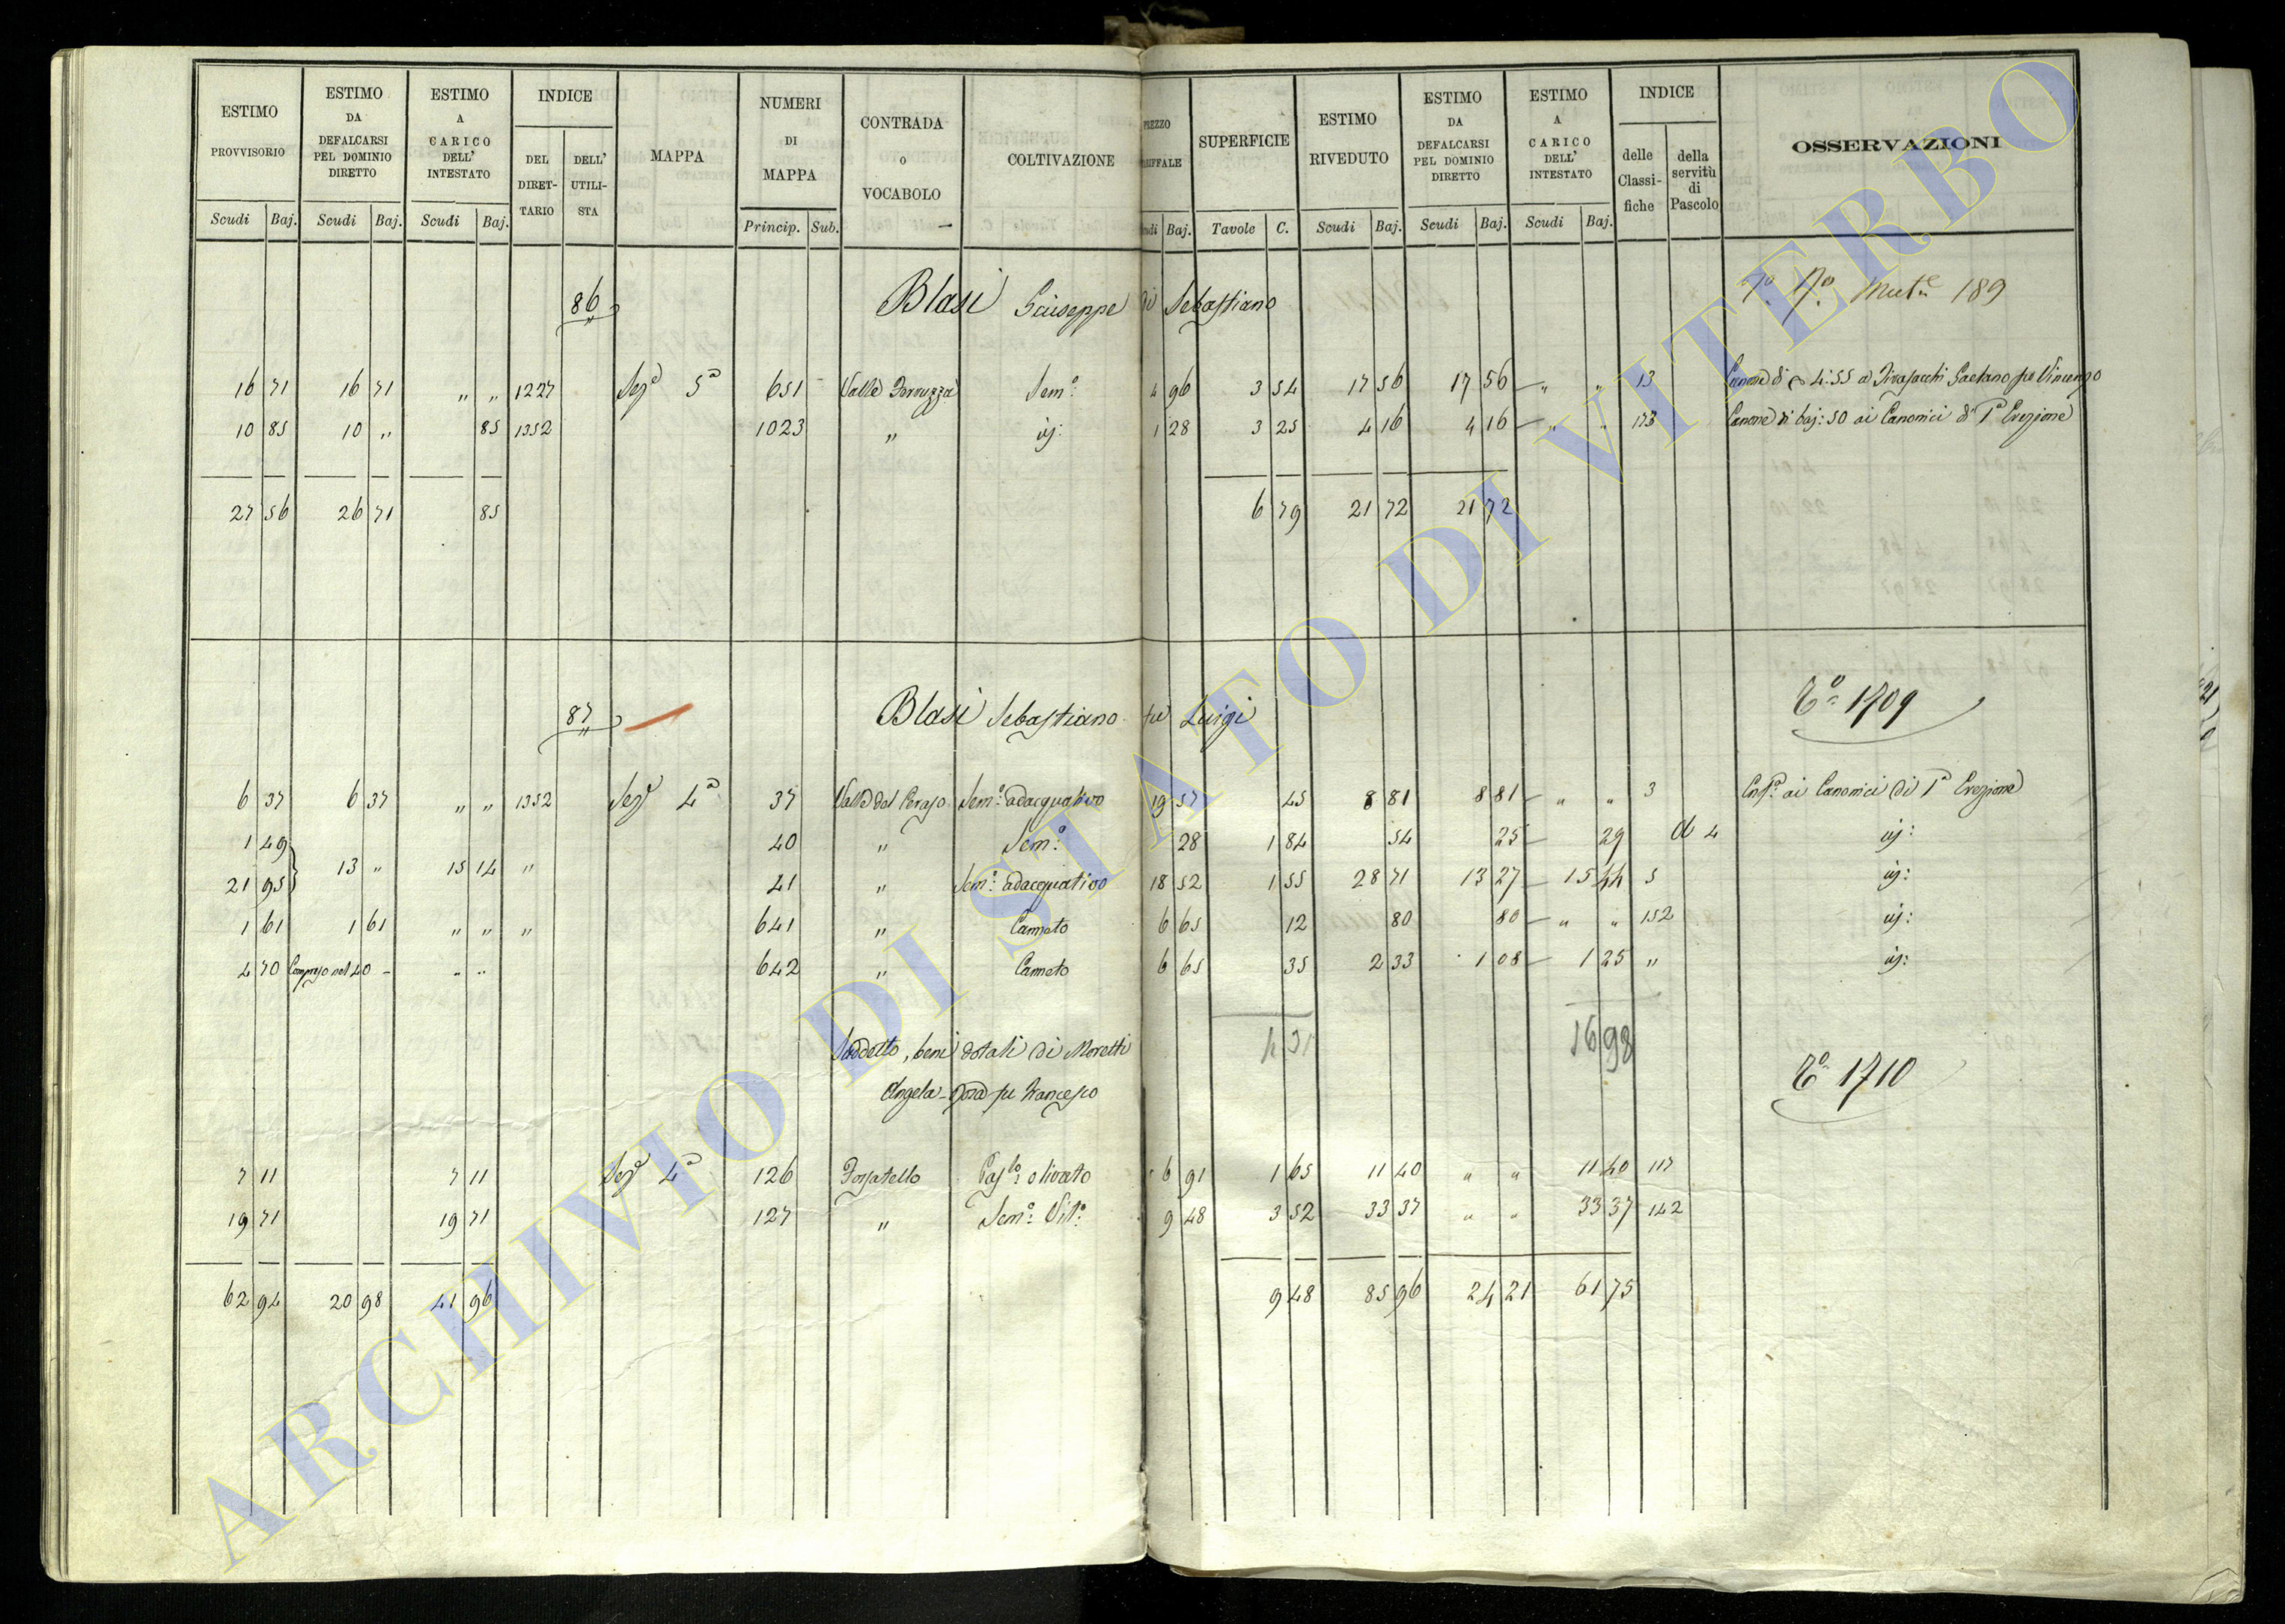 ESTIMO PROVVISORIO | ESTIMO DA DEFALCARSI PEL DOMINIO DIRETTO | ESTIMO A CARICO DELL' INTESTATO | INDICE | MAPPA | NUMERI DI MAPPA | CONTRADA O VOCABOLO | COLTIVAZIONE | PREZZO | SUPERFICIE | ESTIMO RIVEDUTO | ESTIMO DA DEFALCARSI PEL DOMINIO DIRETTO | ESTIMO A CARICO DELL' INTESTATO | INDICE | OSSERVAZIONI
DEL DIRETTARIO | DELL' UTILISTA | delle Classifiche | della servitù di Pascolo
Scudi | Baj. | Scudi | Baj. | Scudi | Baj. | Princip. | Sub. | Baj. | Tavole | C. | Scudi | Baj. | Scudi | Baj. | Scudi | Baj.
86 Blasi Giuseppe di Sebastiano 189
16 71 16 71 " " 1227 Sezᵉ 5ª 651 Valle Semᵒ: 4 96 3 54 17 56 17 56 " " 13 Canone di 4:55 a Gaetano fu Vincenzo
10 85 10 " 85 1352 1023 " id: 1 28 3 25 4 16 4 16 " " 173 Canone di baj: 50 ai Canonici di 1ª Erezione
27 56 26 71 85 6 79 21 72 21 72
87 Blasi Sebastiano fu Luigi 1709
6 37 6 37 " " 1352 Sezᵉ 4ª 37 Valle del Ceraso Semᵒ: adacquativo 19 57 45 8 81 8 81 " " 3 ai Canonici di 1ª Erezione
1 49 40 " Semᵒ: 28 1 84 54 25 29 d 4 id:
13 " 15 14 "
21 95 41 " Semᵒ: adacquativo 18 52 1 55 28 71 13 27 15 44 5 id:
1 61 1 61 " " " 641 " Canneto 6 65 12 80 80 " " 152 id:
4 70 Compreso nel 40 " " 642 " Canneto 6 65 35 2 33 1 08 1 25 " id:
4 31 16 98
Suddetto, beni dotali di Moretti
Angela fu Francesco 1710
7 11 7 11 Sezᵉ 4ª 126 Fossatello Pasˡᵒ: olivato 6 91 1 65 11 40 " " 11 40 117
19 71 19 71 127 " Semᵒ: Vitᵒ: 9 48 3 52 33 37 " " 33 37 142
62 94 20 98 41 96 9 48 85 96 24 21 61 75
ARCHIVIO DI STATO DI VITERBO